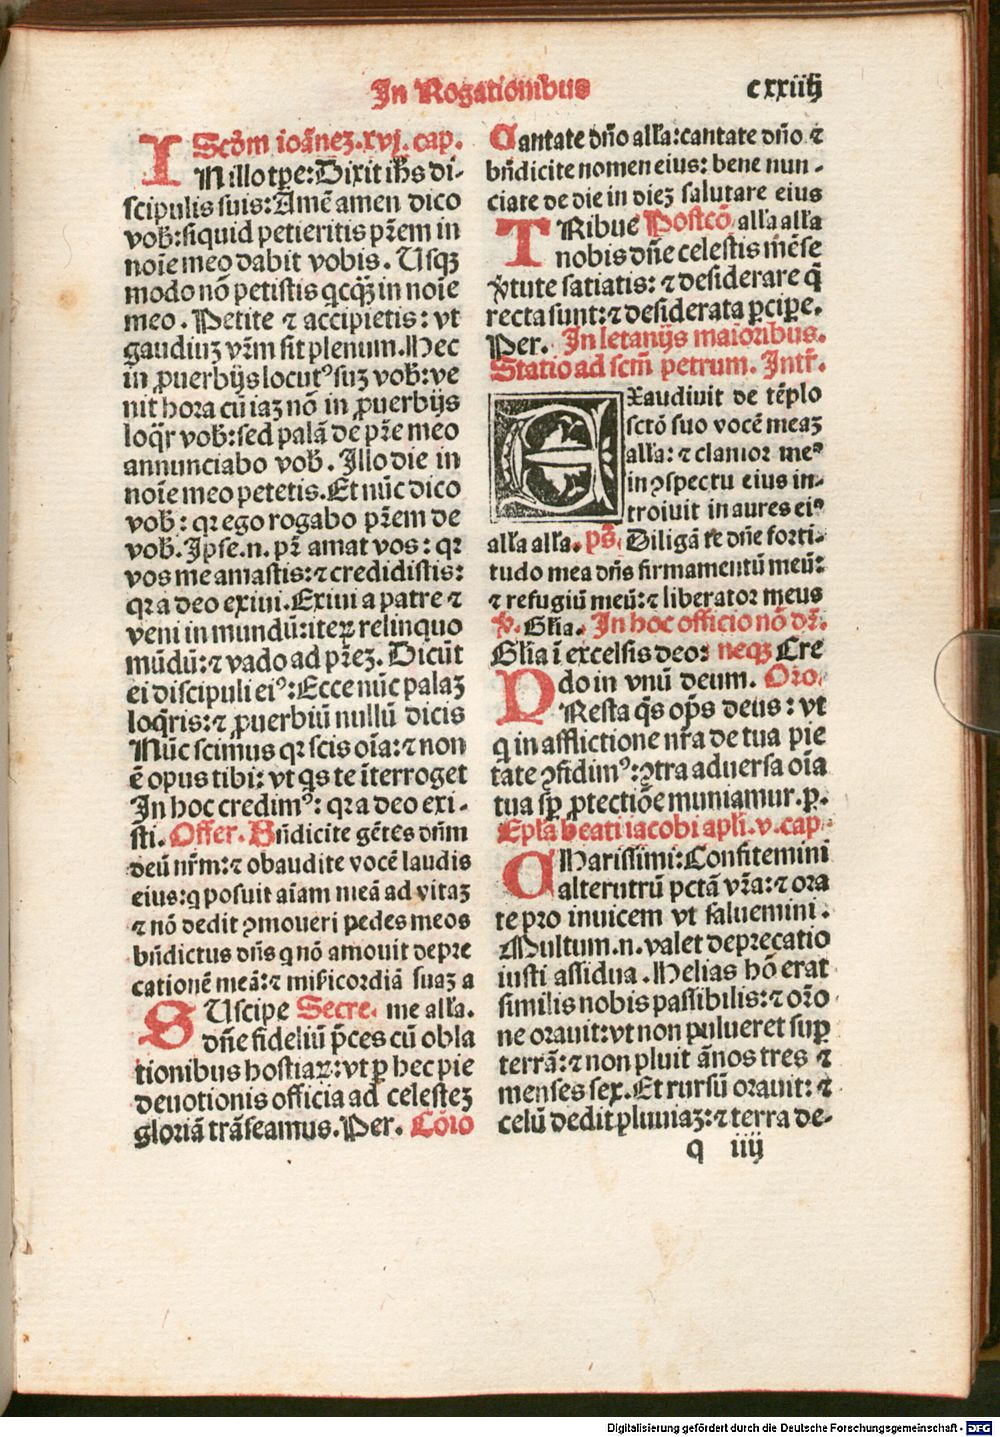 In Rogationibus
cxxiiij
Scd̄m ioānez.xvj. cap.
INillo tp̄e: Dixit ih̄s di-
scipulis suis: Amē amen dico
vob̄: siquid petieritis pr̄em in
noīe meo dabit vobis. Usqꝫ
modo nō petistis qcq̄ꝫ in noīe
meo. Petite ⁊ accipietis: vt
gaudiuꝫ vr̄m sit plenum. Hec
in ꝓuerbijs locutꝰ suꝫ vob̄: ve
nit hora cū iaꝫ nō in ꝓuerbijs
loq̄r vob̄: sed palā de pr̄e meo
annunciabo vob̄. Illo die in
noīe meo petetis. Et nūc dico
vob̄: qꝛ ego rogabo pr̄em de
vob̄. Ipse.n. pr̄ amat vos: qꝛ
vos me amastis: ⁊ credidistis:
qꝛ a deo exiui. Exiui a patre ⁊
veni in mundū: iteꝝ relinquo
mūdū: ⁊ vado ad pr̄eꝫ. Dicūt
ei discipuli eiꝰ: Ecce nūc palaꝫ
loq̄ris: ⁊ ꝓuerbiū nullū dicis
Nūc scimus qꝛ scis oīa: ⁊ non
ē opus tibi: vt qs te īterroget
In hoc credimꝰ: qꝛ a deo exi-
sti. Offer. Bn̄dicite gētes dn̄m
deū nr̄m: ⁊ obaudite vocē laudis
eius: q posuit aīam meā ad vitaꝫ
⁊ nō dedit ꝯmoueri pedes meos
bn̄dictus dn̄s q nō amouit depre
cationē meā: ⁊ mi̅ẜicordiā suaꝫ a
SUscipe Secre. me all'a.
dn̄e fideliū p̄ces cū obla
tionibus hostiaꝝ: vt ꝑ hec pie
deuotionis officia ad celesteꝫ
gloriā trāseamus. Per. Cōio
Cantate dn̄o all'a: cantate dn̄o ⁊
bn̄dicite nomen eius: bene nun-
ciate de die in dieꝫ salutare eius
TRibue Postcō. all'a all'a
nobis dn̄e celestis mēse
v̄tute satiatis: ⁊ desiderare q̄
recta sunt: ⁊ desiderata ꝑcipe̅.
Per. In letanijs maioribus.
Statio ad scm̄ petrum. Intr̄.
EXaudiuit de tēplo
sctō suo vocē meaꝫ
all'a: ⁊ clamor meꝰ
in ꝯspectu eius in-
troiuit in aures eiꝰ
all'a all'a. ps̄. Diligā te dn̄e forti-
tudo mea dn̄s firmamentū meū:
⁊ refugiū meū: ⁊ liberator meus
℣. Gl̄ia. In hoc officio nō dr̄.
Gl̄ia ī excelsis deo: neqꝫ Cre
do in vnū deum. Oro.
PResta q̄s op̄s deus: vt
q in afflictione nr̄a de tua pie
tate ꝯfidimꝰ: ꝯtra aduersa oīa
tua sp̄ ꝓtectiōe muniamur. p.
Epl'a beati iacobi apl'i. v. cap.
CHarissimi: Confitemini
alterutrū pctā vr̄a: ⁊ ora
te pro inuicem vt saluemini.
Multum.n. valet deprecatio
iusti assidua. Helias hō erat
similis nobis passibilis: ⁊ or̄o
ne orauit: vt non pulueret suꝑ
terrā: ⁊ non pluit ānos tres ⁊
menses sex. Et rursū orauit: ⁊
celū dedit pluuiaꝫ: ⁊ terra de-
q iiij
Digitalisierung gefördert durch die Deutsche Forschungsgemeinschaft - DFG